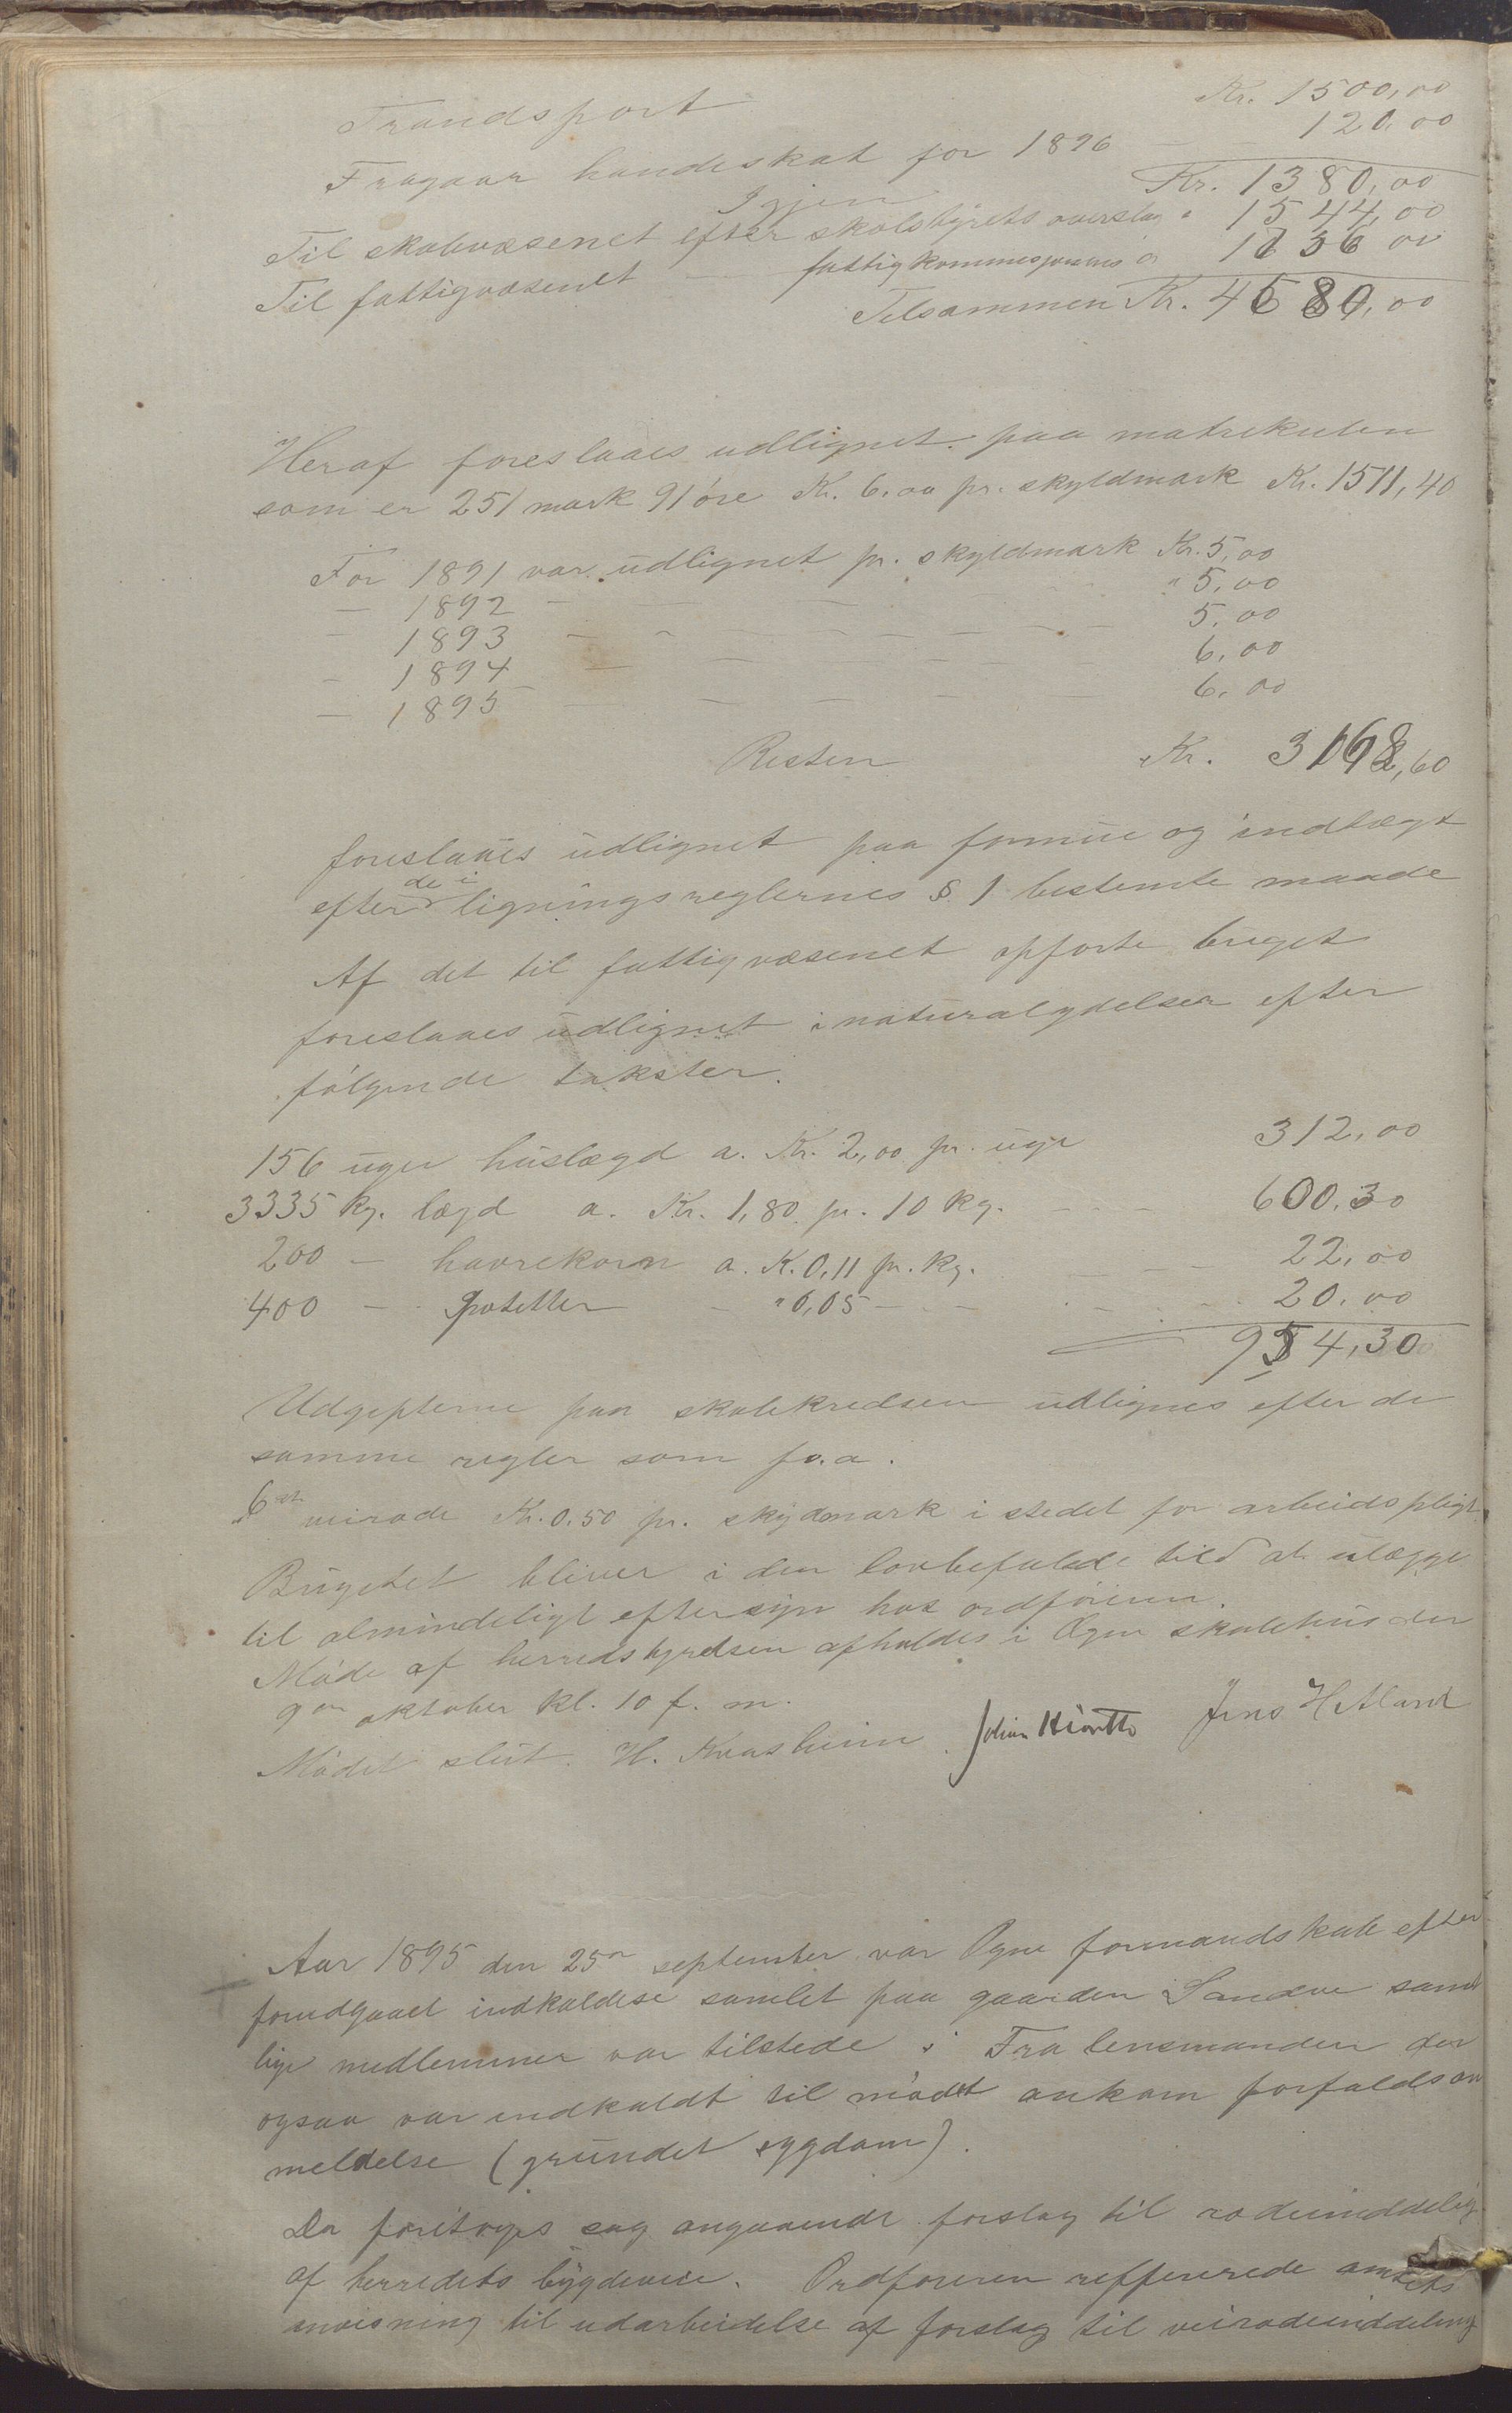 Trandsport Kr. 1500,00
Fragaar hundeskat for 1896 — — 120,00
Igjen Kr. 1380,00
Til skolevæsenet efter skolstyrets overslag " 1544,00
Til fattigvæsenet — fattigkommisjonens " 1756 00
Tilsammen Kr. 4680,00
Heraf foreslaaes udlignet paa matrikulen
som er 251 mark 91 øre Kr. 6,00 pr. skyldmark Kr. 1511,40
For 1891 var udlignet pr. skyldmark Kr. 5,00
— 1892 — — — — " 5,00
— 1893 — — — — 5,00
— 1894 — — — — 6,00
— 1895 — — — — 6,00
Resten Kr. 3168,60
foreslaaes udlignet paa formue og indtægt
efter de i ligningsreglernes § 1 bestemte maade
Af det til fattigvæsenet opførte buget
foreslaaes udlignet i naturalydelser efter
følgende takster.
156 uger huslægd a. Kr. 2,00 pr. uge 312,00
3335 kg. lægd a. Kr. 1,80 pr. 10 kg. — — — 600,30
200 — havrekorn a. K. 0,11 pr. kg. — — — 22,00
400 — potetter — " 0,05 — — — 20,00
954,30
Udgifterne paa skolekredsen udlignes efter de
samme regler som f.a.
6te veirode Kr. 0,50 pr. skydmark i stedet for arbeidspligt.
Bugetet bliver i den lovbefalede tid at udlægge
til almindeligt eftersyn hos ordføreren.
Møde af herredstyrelsen afholdes i Ogne skolehus den
9de oktober kl. 10 f. m.
Mødet slut. H. Kvasheim Jens Hetland
Aar 1895 den 25de september var Ogne formandskab efter
forudgaaet indkaldelse samlet paa gaarden Sandve samt
lige medlemmer var tilstede. Fra lensmanden der
ogsaa var indkaldt til mødet ankom forfaldsan
meldelse (grundet sygdom).
Da foritoges sag angaaende forslag til rodeinddeling
af herredets bygdeveie. Ordføreren reffererede amtets
anvisning til udarbeidelse af forslag til veirodeinddeling